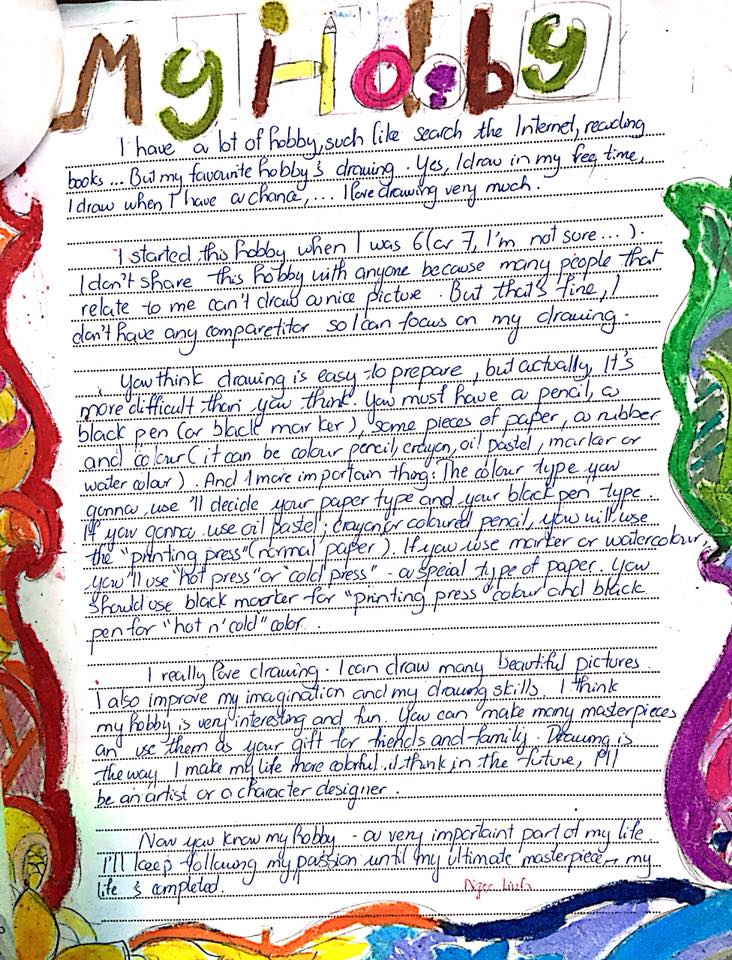 My Hobby
I have a lot of hobby, such like search the Internet, reading
books ... But my favourite hobby's drawing. Yes, I draw in my free time,
I draw when I have a chance, ... I love drawing very much.
I started this hobby when I was 6 (or 7, I'm not sure ... ).
I don't share this hobby with anyone because many people that
relate to me can't draw a nice picture. But that's fine, I
don't have any comparetitor so I can focus on my drawing.
You think drawing is easy to prepare, but actually. It's
more difficult than you think. You must have a pencil, a
black pen (or black marker), some pieces of paper, a rubber
and colour (it can be colour pencil, crayon, oil pastel, marker or
water colour). And 1 more importain thing: The colour type you
gonna use 'll decide your paper type and your black pen type.
If you gonna use oil pastel; crayon or coloured pencil, you will use
the "printing press" (normal paper). If you use marker or watercolour,
you'll use "hot press" or "cold press" - a special type of paper. You
should use black marker for "printing press" colour and black
pen for "hot n' cold" color.
I really love drawing. I can draw many beautiful pictures.
I also improve my imagination and my drawing skills. I think
my hobby is very interesting and fun. You can make many masterpieces
an use them as your gift for friends and family. Drawing is
the way I make my life more colorful. I think, in the future, I'll
be an artist or a character designer.
Now you know my hobby - a very importaint part of my life.
I'll keep following my passion until my ultimate masterpiece → my
life is completed.
Ngoc Linh